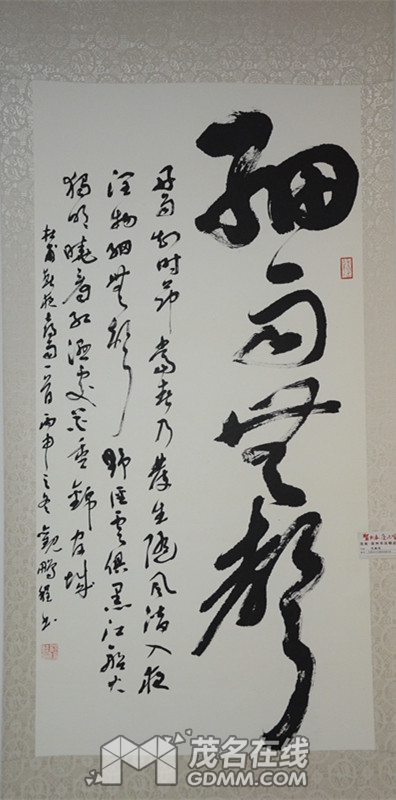 細雨無聲
好雨知时節當春乃發生随風潛入夜
潤物細無聲野徑雲俱黑江船火
獨明曉看紅濕處花重錦官城
杜甫春夜喜雨一首丙申之冬鵬程书
茂名在线
GDMM.COM